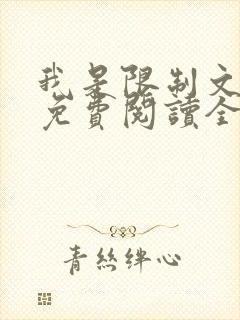 我是限制文
免費閱讀全
青絲絆心